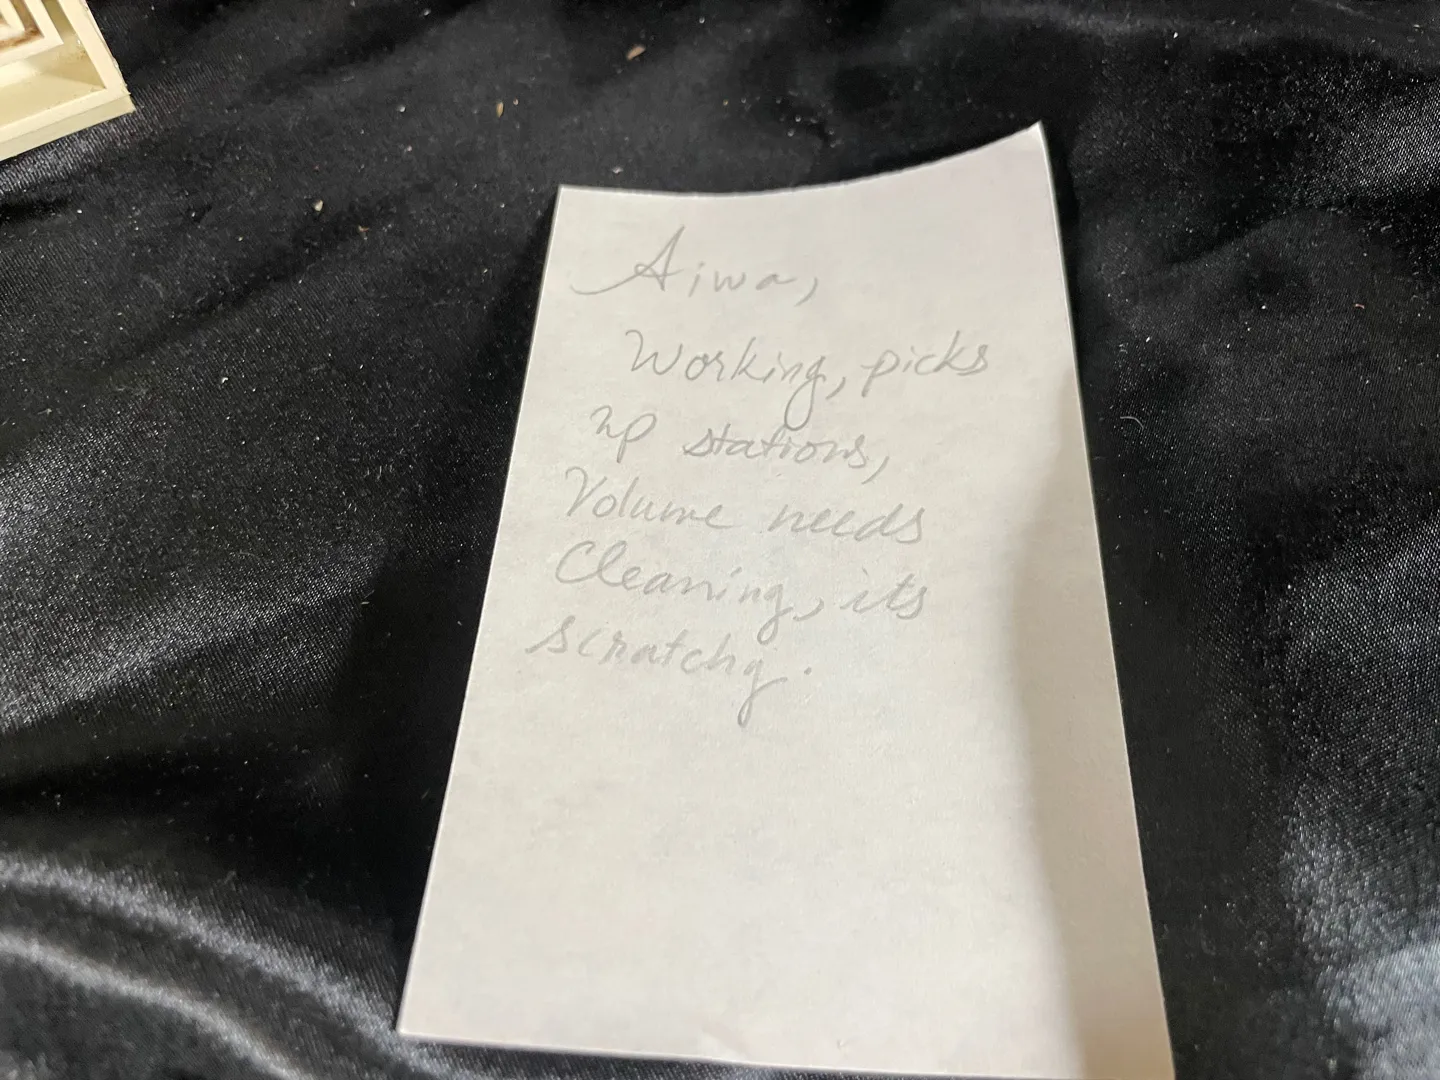 Aiwa,
Working, picks
up stations,
Volume needs
Cleaning, its
scratchy.